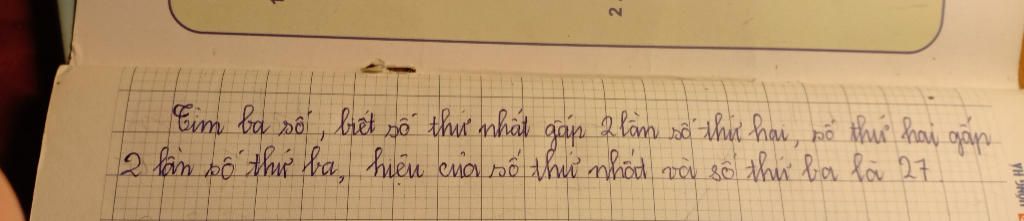 2
Tìm ba số, biết số thứ nhất gấp 2 lần số thứ hai, số thứ hai gấp
2 lần số thứ ba, hiệu của số thứ nhất và số thứ ba là 27
HỒNG HÀ